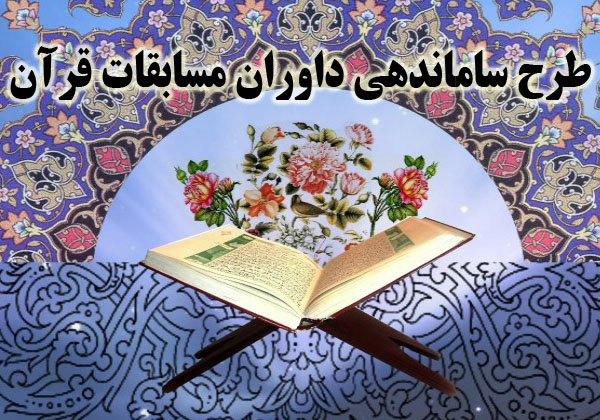 طرح ساماندهی داوران مسابقات قرآن